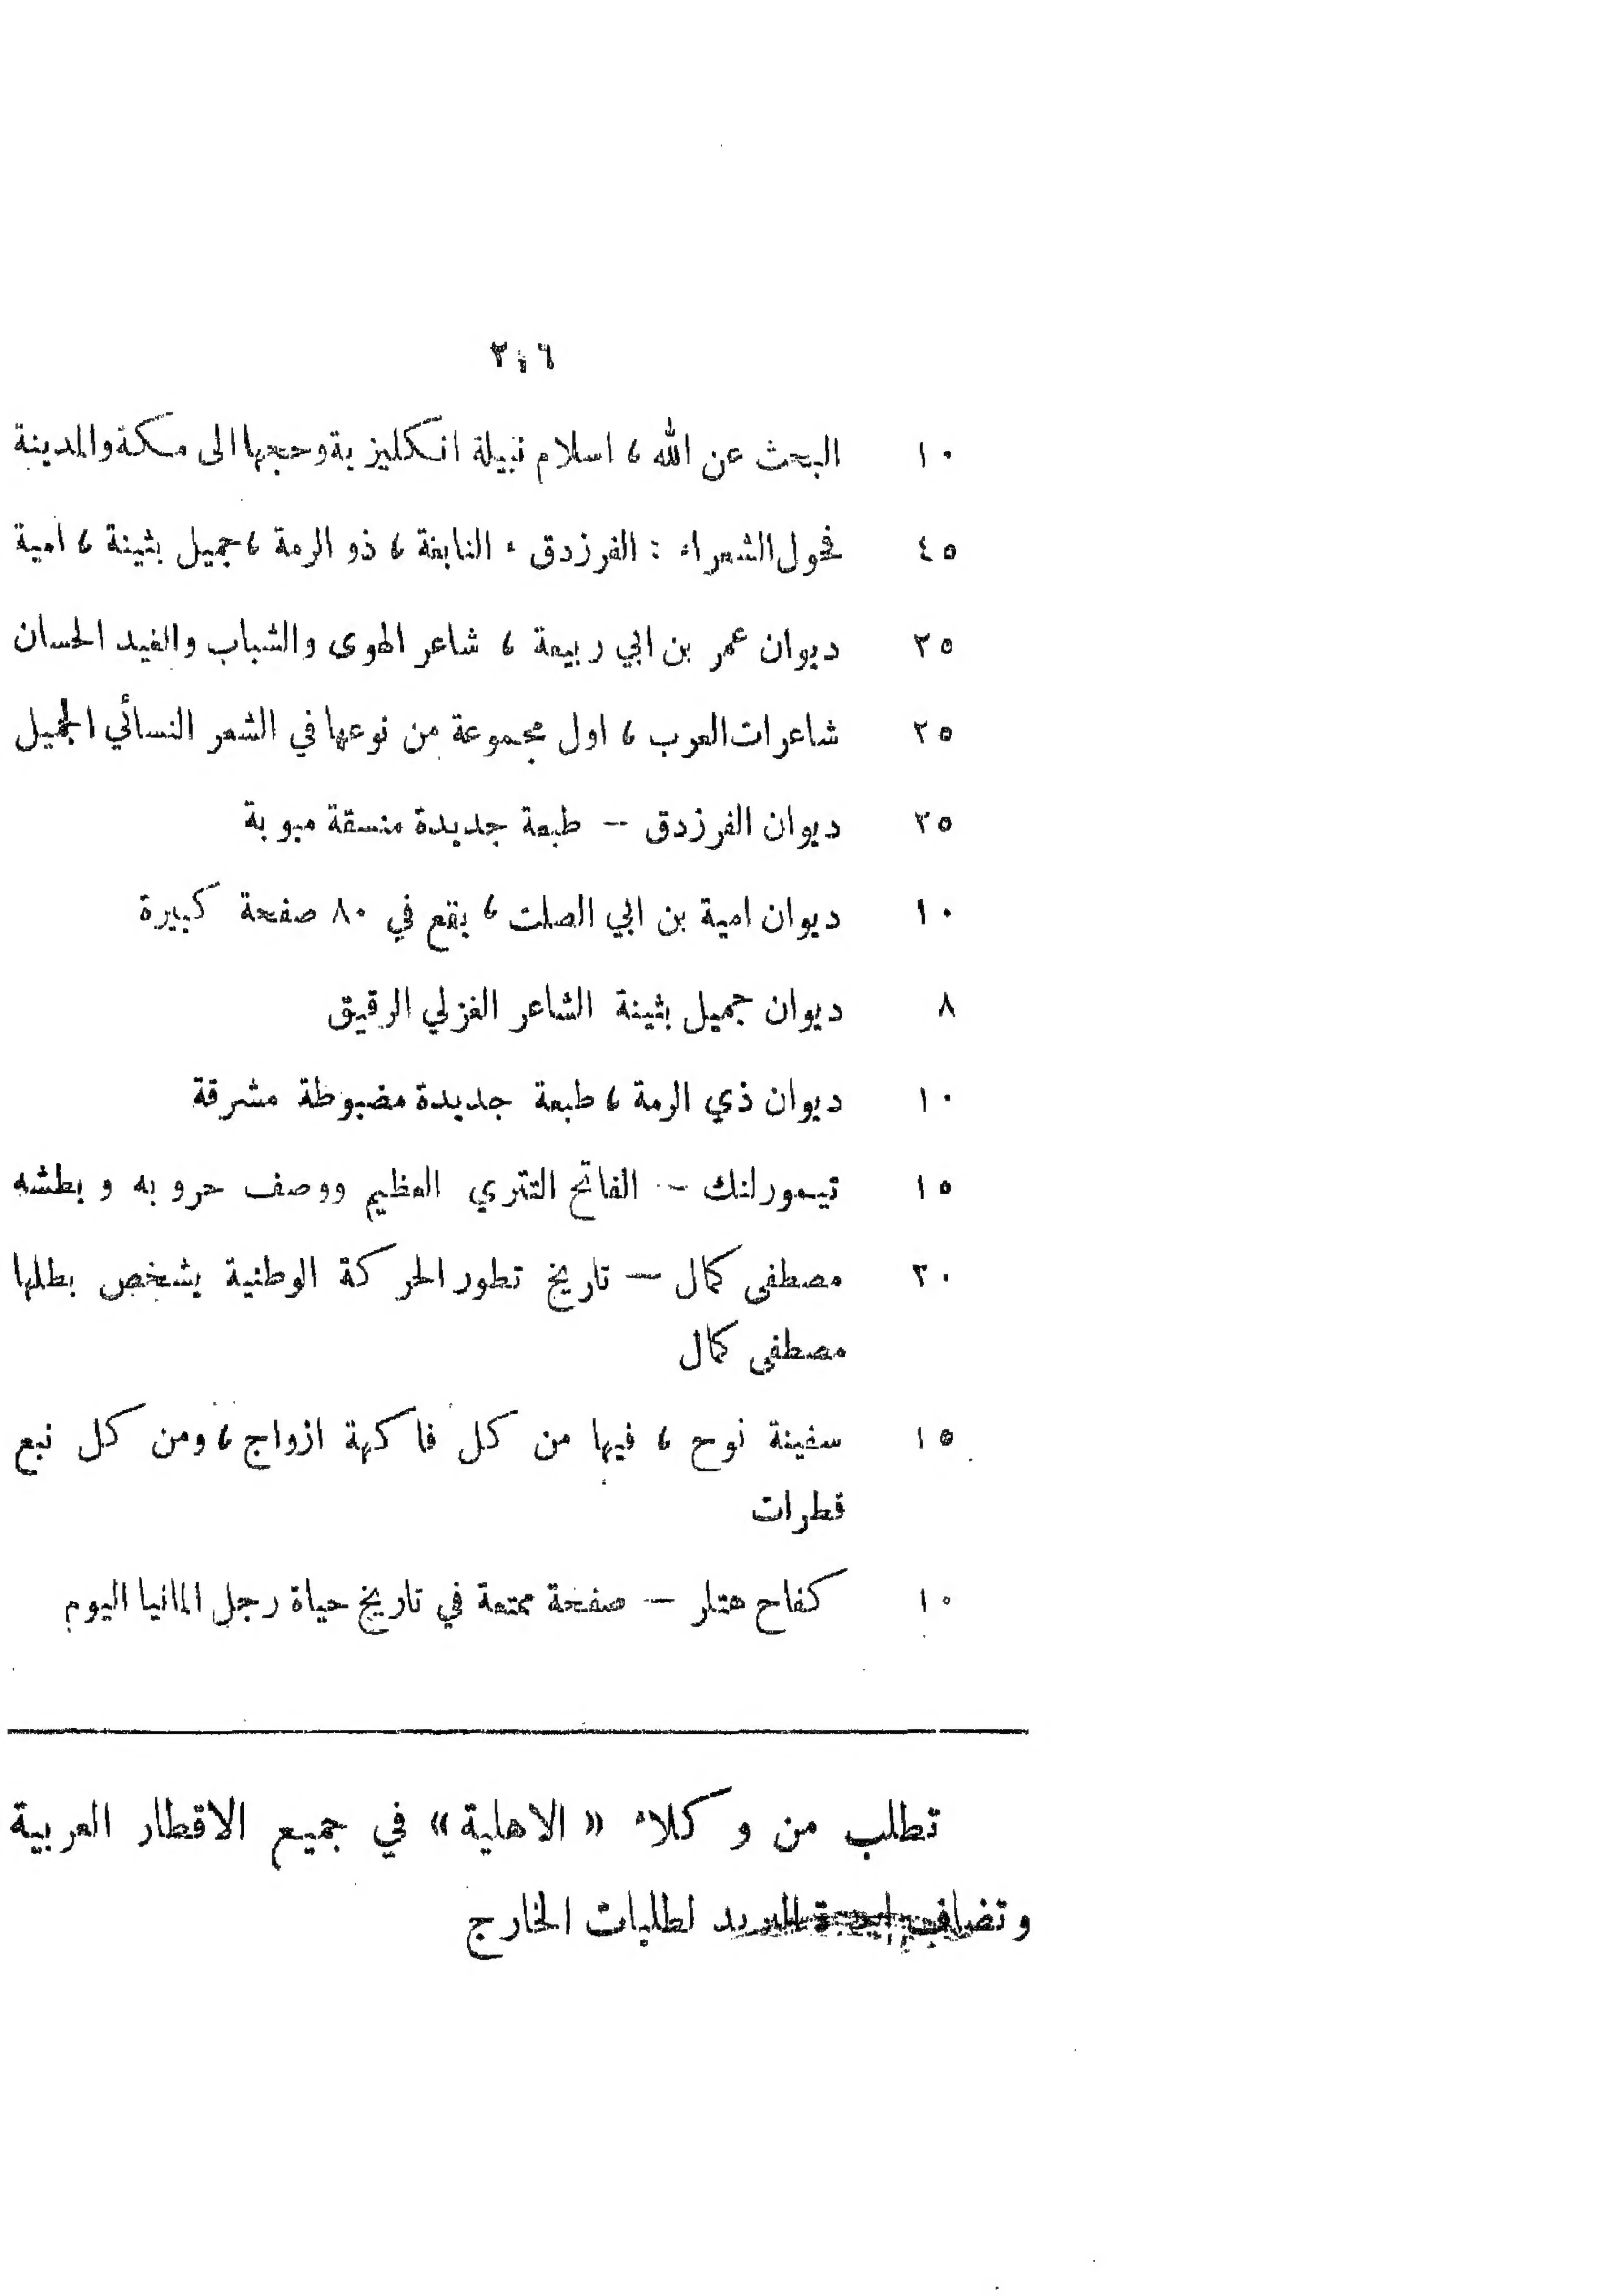 ١٠ البحث عن الله ، اسلام نبيلة انكليزية وحجها الى مكة والمدينة
٤٥ فحول الشعراء : الفرزدق ، النابغة ، ذو الرمة ، جميل بثينة ، امية
٢٥ ديوان عمر بن ابي ربيعة ، شاعر الهوى والشباب والغيد الحسان
٢٥ شاعرات العرب ، اول مجموعة من نوعها في الشعر النسائي الجميل
٢٥ ديوان الفرزدق — طبعة جديدة منسقة مبوبة
١٠ ديوان امية بن ابي الصلت ، يقع في ٨٠ صفحة كبيرة
٨ ديوان جميل بثينة الشاعر الغزلي الرقيق
١٠ ديوان ذي الرمة ، طبعة جديدة مضبوطة مشرقة
١٥ تيمورلنك — الفاتح التتري العظيم ووصف حروبه وبطشه
٢٠ مصطفى كمال — تاريخ تطور الحركة الوطنية بشخص بطلها
مصطفى كمال
١٥ سفينة نوح ، فيها من كل فاكهة ازواج ، ومن كل نبع
قطرات
١٠ كفاح هتلر — صفحة ممتعة في تاريخ حياة رجل المانيا اليوم
تطلب من وكلاء « الاهلية » في جميع الاقطار العربية
وتضاف اجرة البريد لطلبات الخارج